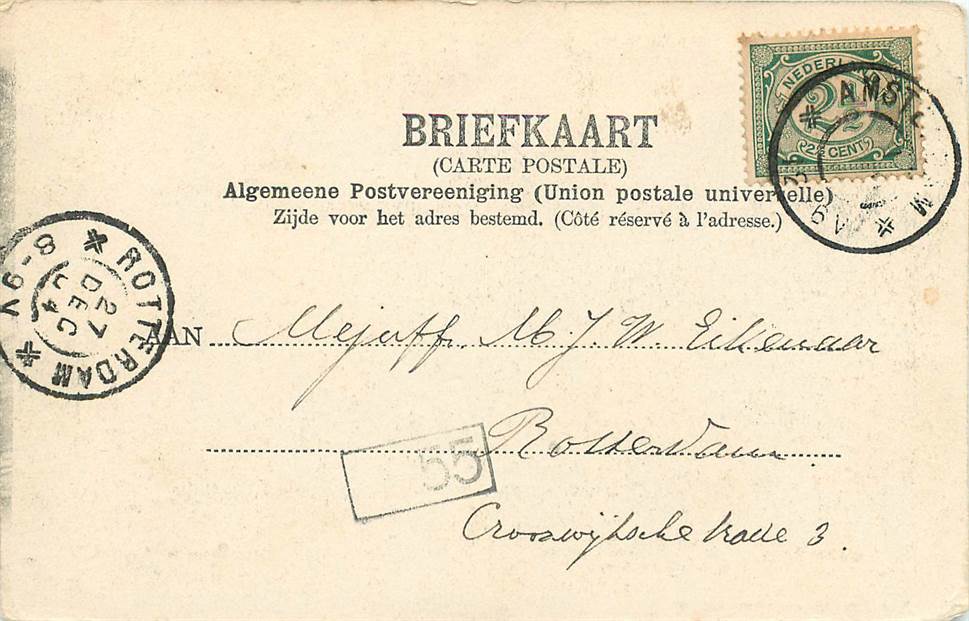 NEDERLAND
2½
2½ CENT
AMST M
BRIEFKAART
(CARTE POSTALE)
Algemeene Postvereeniging (Union postale universelle)
Zijde voor het adres bestemd. (Côté réservé à l'adresse.)
ROTTERDAM
8-9V
27
DEC
04
AAN Mejuff. M. J. W. Eikenaar
Rotterdam.
55
Crooswijksche kade 3.